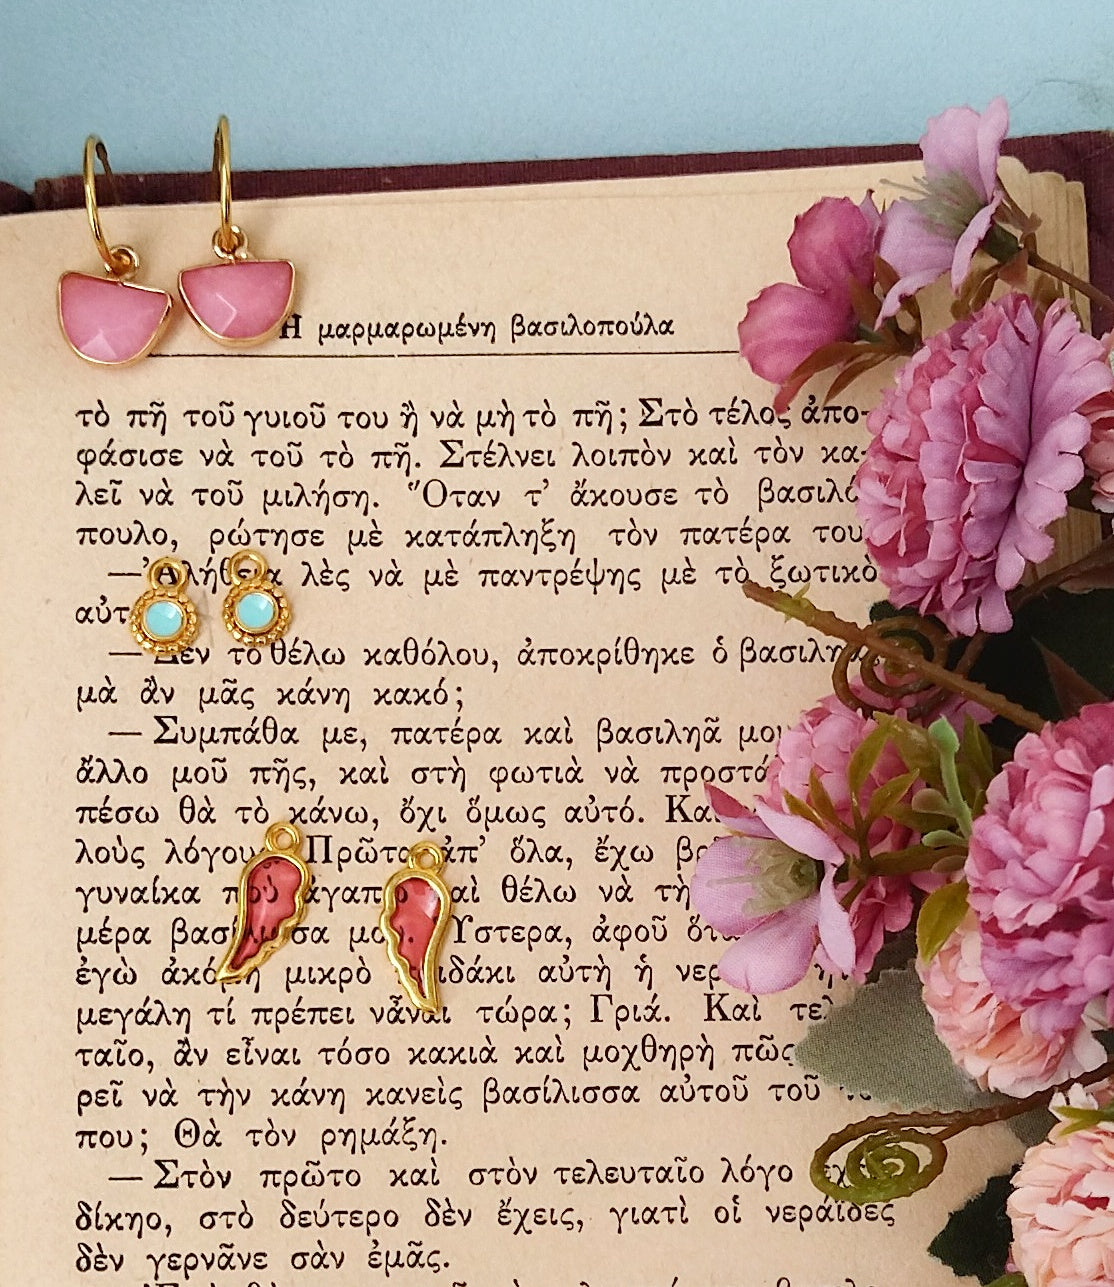 Η μαρμαρωμένη βασιλοπούλα
τὸ πῆ τοῦ γυιοῦ του ἢ νὰ μὴ τὸ πῆ; Στὸ τέλος ἀπο-
φάσισε νὰ τοῦ τὸ πῆ. Στέλνει λοιπὸν καὶ τὸν κα-
λεῖ νὰ τοῦ μιλήση. Ὅταν τ' ἄκουσε τὸ βασιλό
πουλο, ρώτησε μὲ κατάπληξη τὸν πατέρα του
—Ἀλήθεια λὲς νὰ μὲ παντρέψης μὲ τὸ ξωτικὸ
αὐτ
— Δεν τὸ θέλω καθόλου, ἀποκρίθηκε ὁ βασιλη
μὰ ἂν μᾶς κάνη κακό;
— Συμπάθα με, πατέρα καὶ βασιληᾶ μου
ἄλλο μοῦ πῆς, καὶ στὴ φωτιὰ νὰ προστά
πέσω θὰ τὸ κάνω, ὄχι ὅμως αὐτό. Κα
λοὺς λόγου Πρῶτα ἀπ' ὅλα, ἔχω βρ
γυναίκα ποὺ ἀγαπῶ καὶ θέλω νὰ τὴ
μέρα βασίλισσα μου. Ὕστερα, ἀφοῦ ὅτα
ἐγὼ ἀκόμη μικρὸ παιδάκι αὐτὴ ἡ νερ
μεγάλη τί πρέπει νἆναι τώρα; Γριά. Καὶ τελ
ταῖο, ἂν εἶναι τόσο κακιὰ καὶ μοχθηρὴ πῶς
ρεῖ νὰ τὴν κάνη κανεὶς βασίλισσα αὐτοῦ τοῦ
που; Θὰ τὸν ρημάξη.
— Στὸν πρῶτο καὶ στὸν τελευταῖο λόγο ἔχε
δίκηο, στὸ δεύτερο δὲν ἔχεις, γιατὶ οἱ νεράϊδες
δὲν γερνᾶνε σὰν ἐμᾶς.